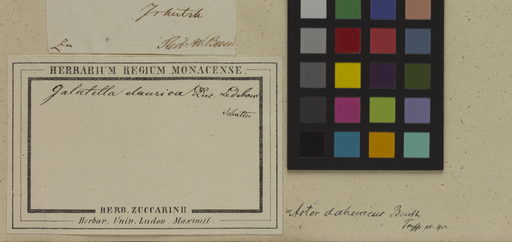 Irkutsk
Herb.
HERBARIUM REGIUM MONACENSE.
Galatella daurica Ledebour
Schultes
HERB. ZUCCARINII
Herbar. Univ. Ludov. Maximil.
Aster dahuricus Benth